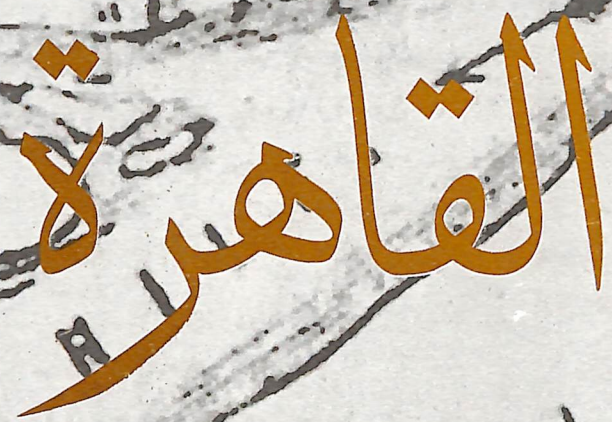 القاهرة